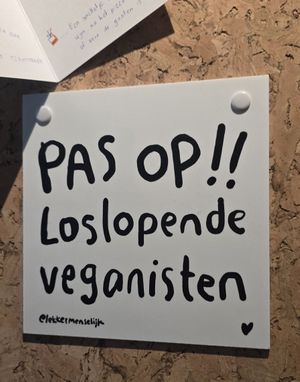 PAS OP!!
Loslopende
veganisten
@lekkermenselijk